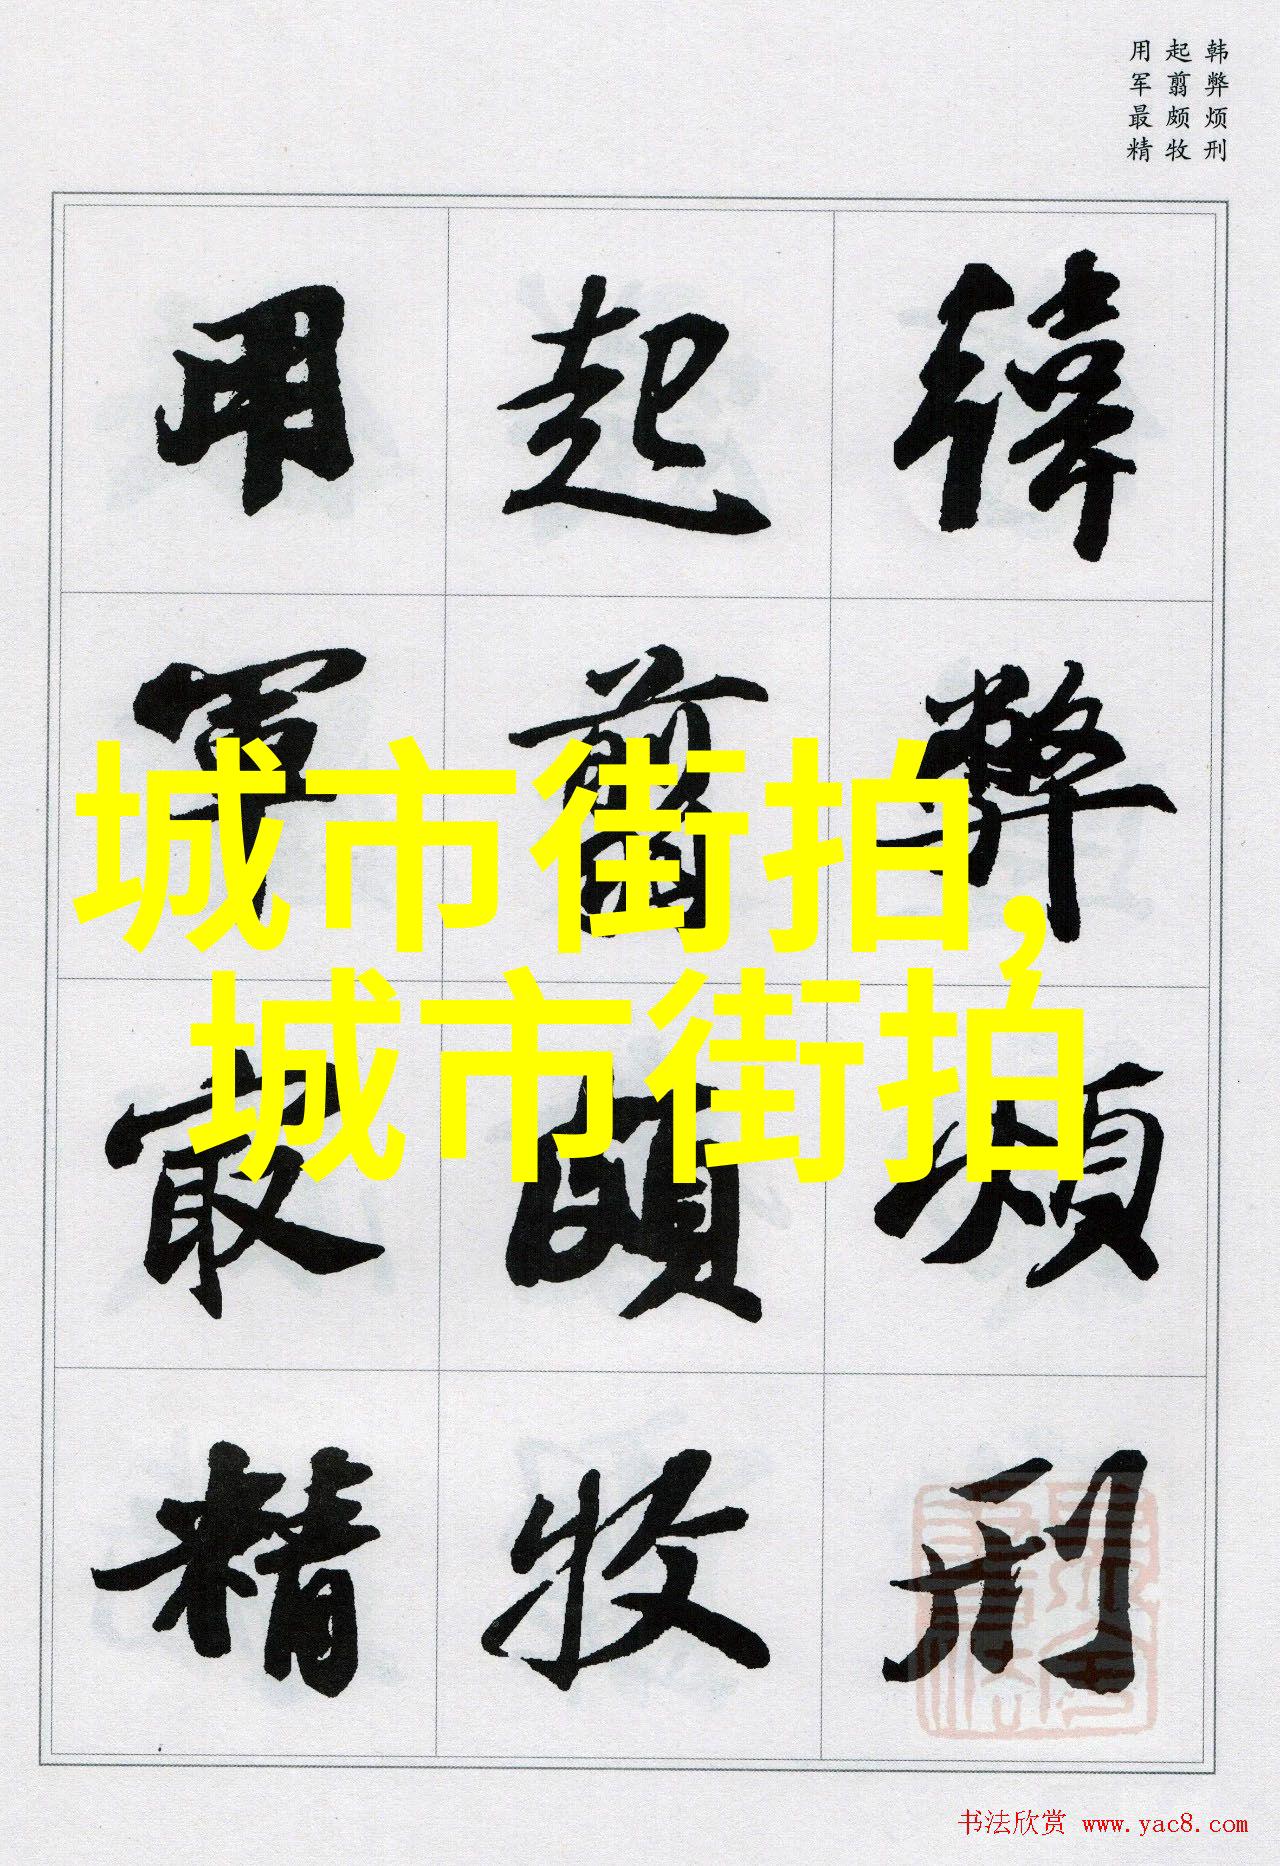 韩弊烦刑
起翦颇牧
用军最精
韓弊煩刑
起翦頗牧
用軍最精
城市街拍,
城市街拍
书法欣赏 www.yac8.com